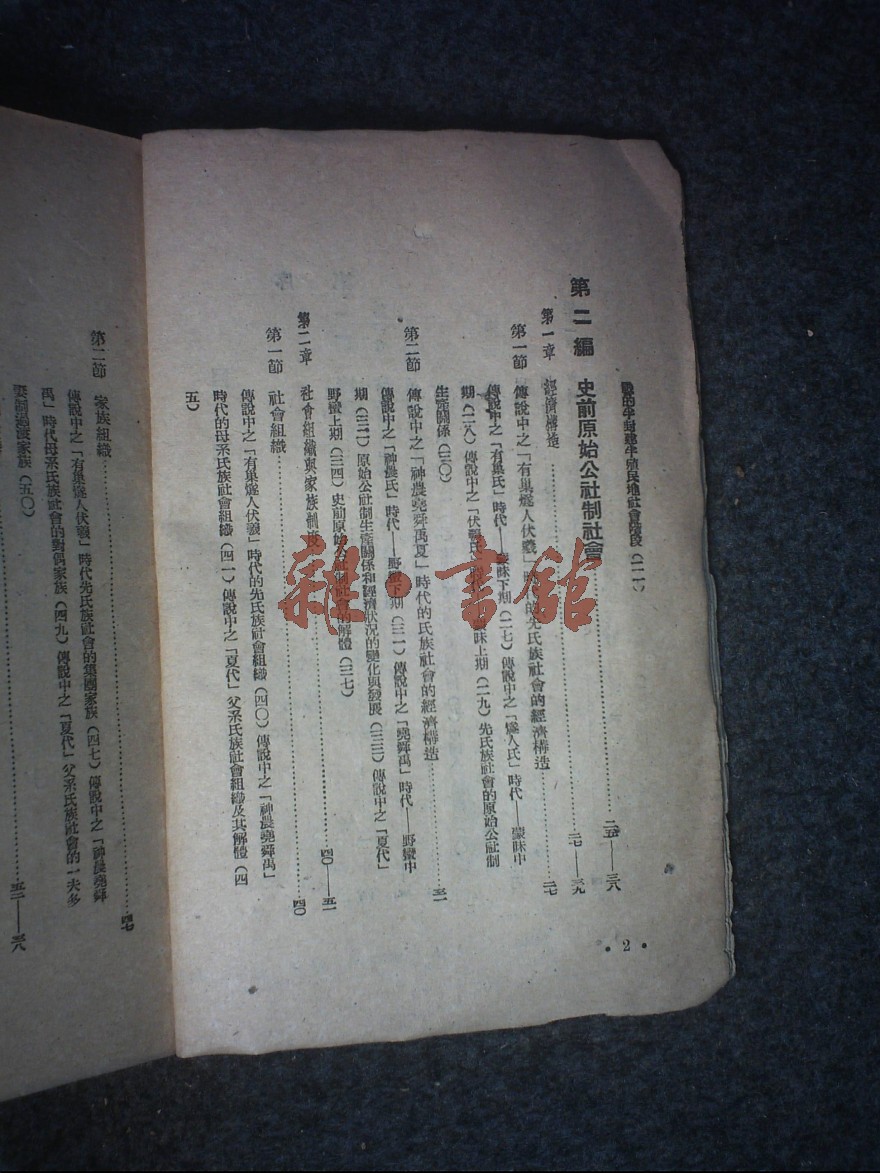 的半封建半殖民地社會階段（二一）
第二編 史前原始公社制社會……二五——三八
第一章 經濟構造……二七——三九
第一節 傳說中之「有巢燧人伏羲」時代的先氏族社會的經濟構造……二七
傳說中之「有巢氏」時代——蒙昧下期（二七）傳說中之「燧人氏」時代——蒙昧中
期（二八）傳說中之「伏羲氏」時代——蒙昧上期（二九）先氏族社會的原始公社制
生產關係（三〇）
第二節 傳說中之「神農堯舜禹夏」時代的氏族社會的經濟構造……三一
傳說中之「神農氏」時代——野蠻下期（三一）傳說中之「堯舜禹」時代——野蠻中
期（三二）原始公社制生產關係和經濟狀況的變化與發展（三三）傳說中之「夏代」
野蠻上期（三四）史前原始公社制社會的解體（三七）
第二章 社會組織與家族制度……四〇——五一
第一節 社會組織……四〇
傳說中之「有巢燧人伏羲」時代的先氏族社會組織（四〇）傳說中之「神農堯舜禹」
時代的母系氏族社會組織（四二）傳說中之「夏代」父系氏族社會組織及其解體（四
五）
• 2 •
第二節 家族組織……四七
傳說中之「有巢燧人伏羲」時代先氏族社會的集團家族（四七）傳說中之「神農堯舜
禹」時代母系氏族社會的對偶家族（四九）傳說中之「夏代」父系氏族社會的一夫多
妻制過渡家族（五〇）
雜·書館